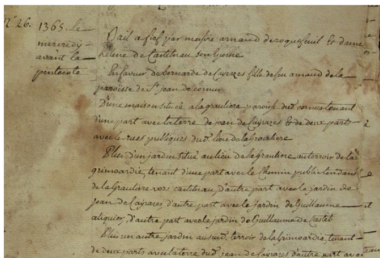 N.° 26. 1365. le
mercredy
avant la
pentecote
Bail a fief par messire arnaud de roquefeuil & dame
helene de Castelnau, son épouse
En faveur de bernarde de Cayrazes fille de feu arnaud de la
paroisse de St jean de cornus
D'une maison sise à la grauliere, paroisse du
d'une part avec la terre de jean de Cayrazes & de deux parts
avec les rues publiques dud. lieu de la grauliere
Plus d'un jardin situé au lieu de la Grauliere au terroir de la
grimoardie, tenant d'une part avec le chemin public tendant
de la Grauliere vers castelnau, d'autre part avec le jardin de
jean de Cayrazes d'autre part avec le jardin de Guillaume
aliquier, d'autre part avec le jardin de Guillaume de Castel
Plus un autre jardin aussi au terroir de la Grimoardie, tenant
de deux parts avec la terre dud. jean de Cayrazes d'autre part avec